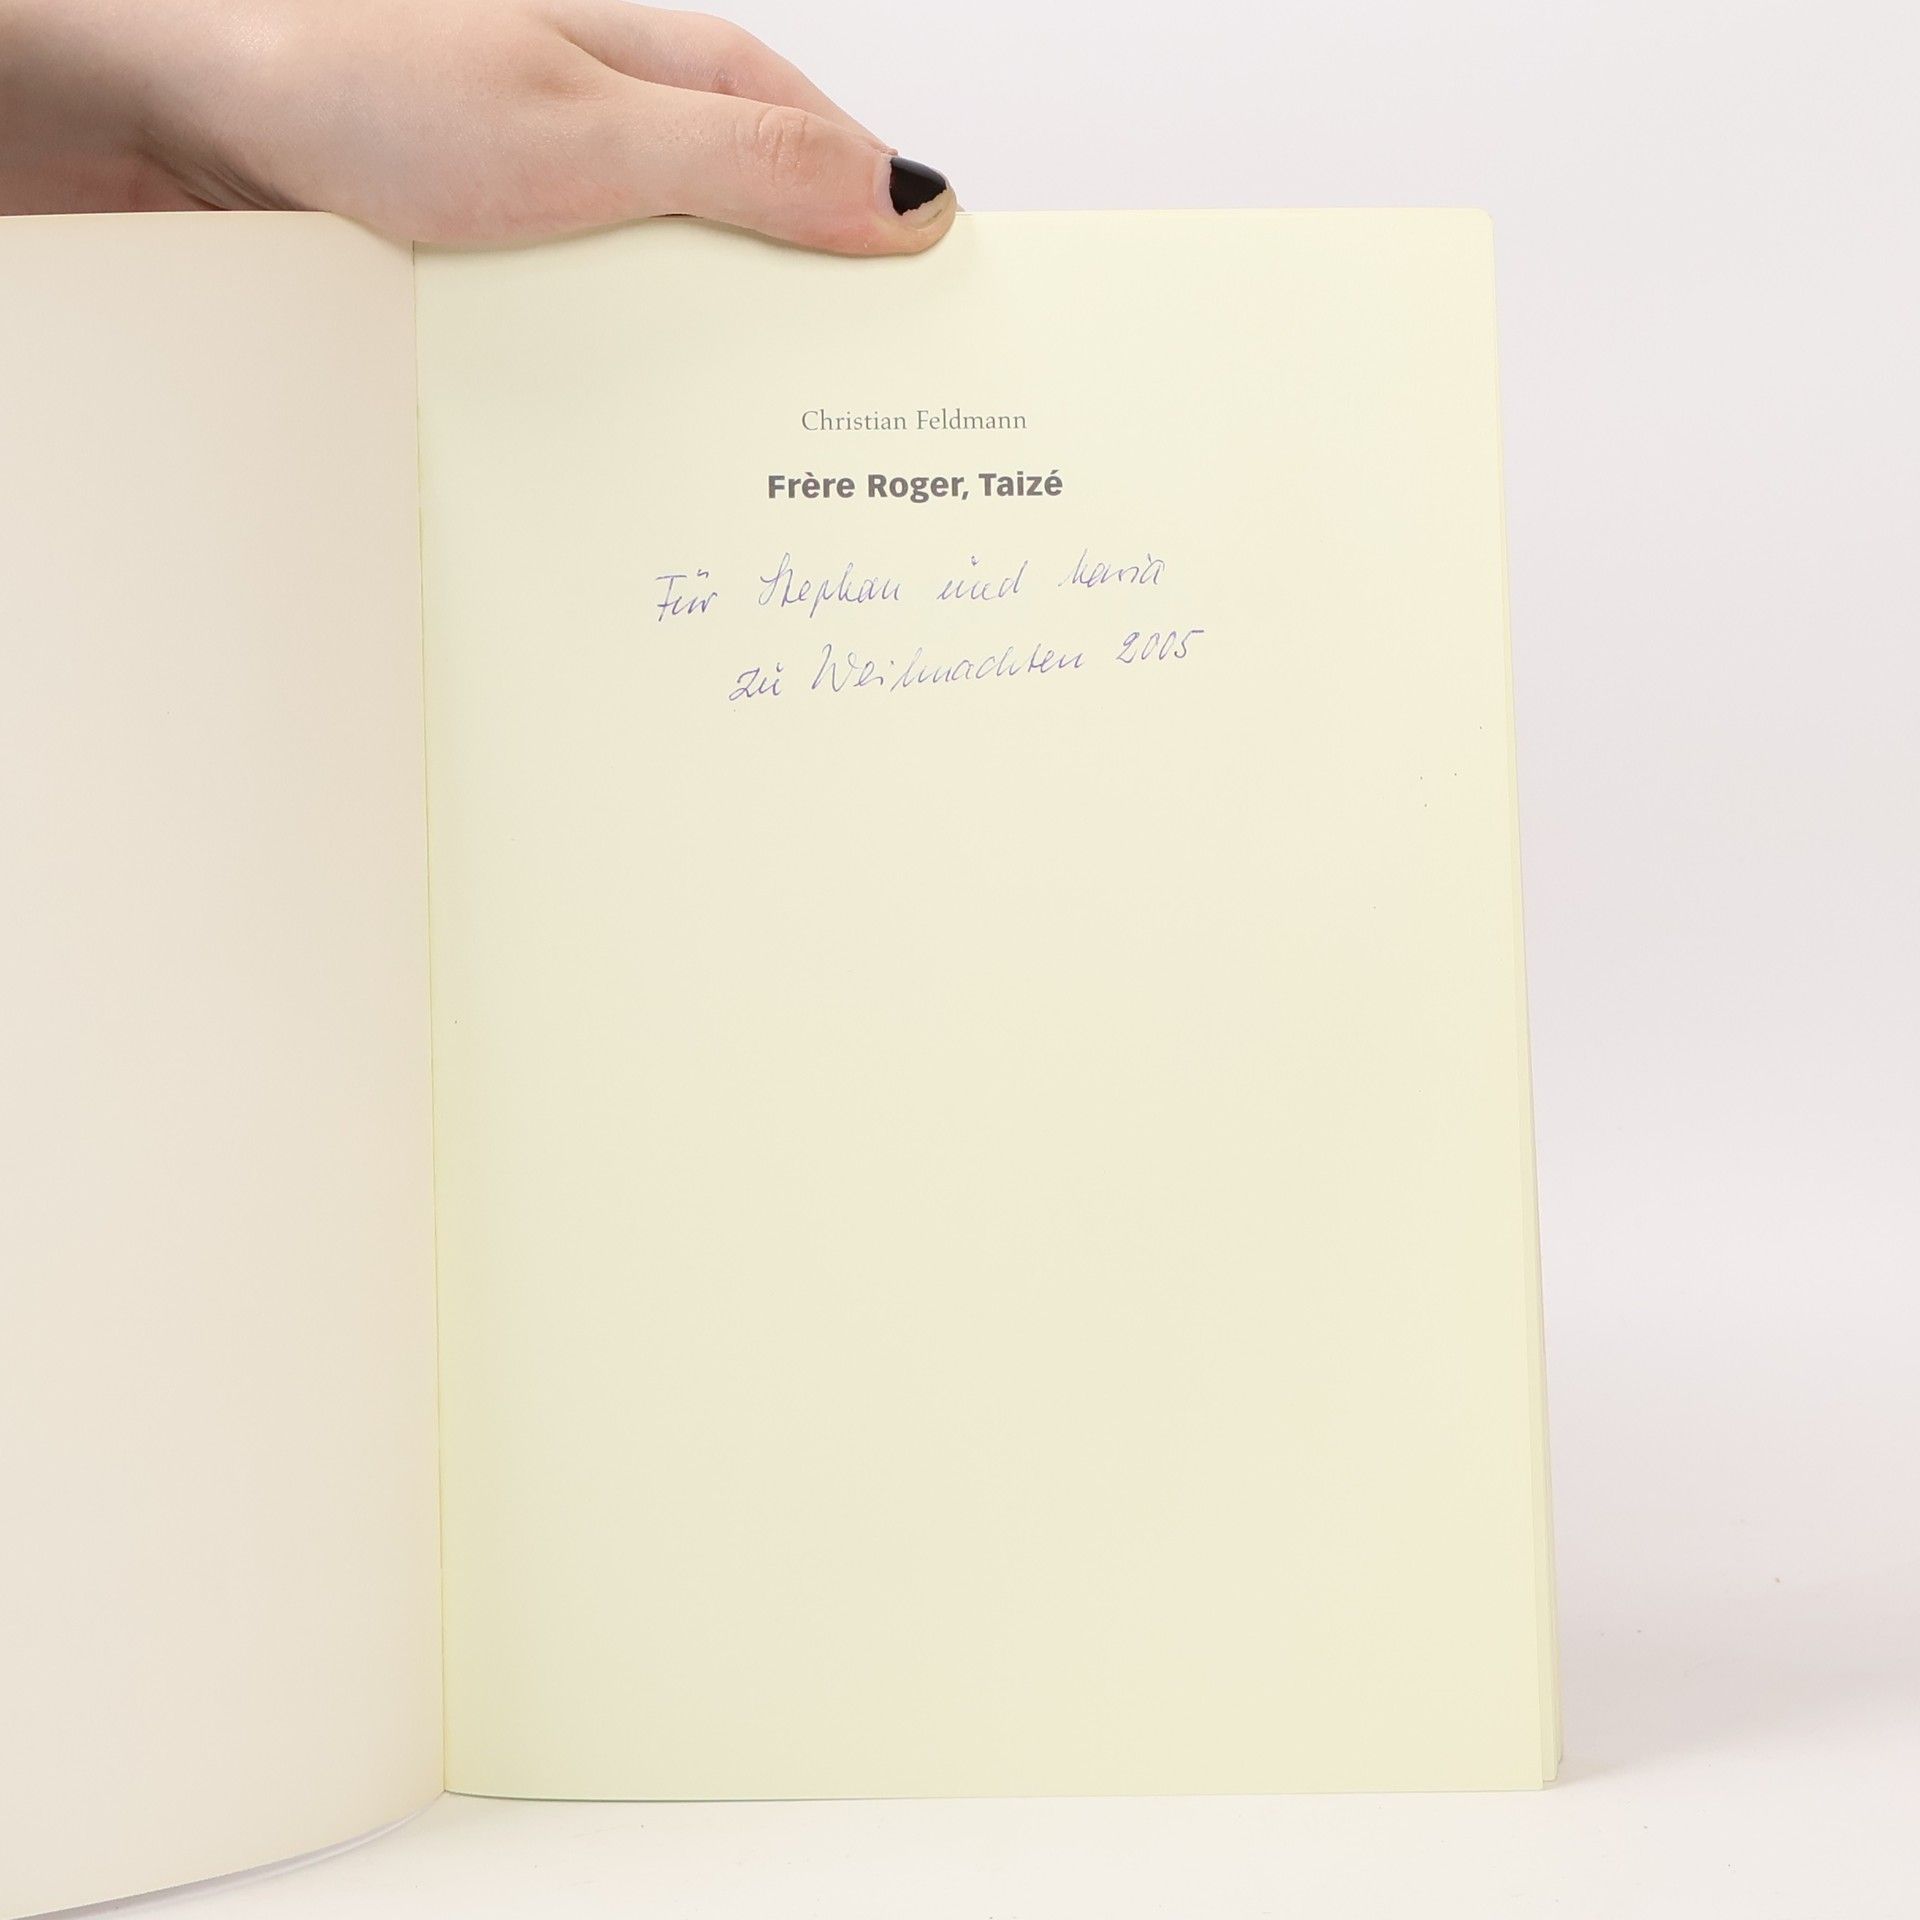 Christian Feldmann
Frère Roger, Taizé
Für Stephan und Maria
zu Weihnachten 2005